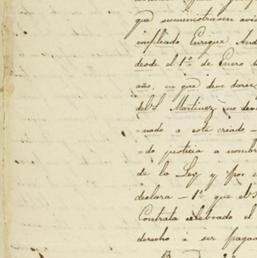 que suministrasen avi
empleado Enrique And
desde el 1º de Enero d
año, en que debe darse
del S. Martinez, no dev
nado a este creado —
do justicia a nombre
de la Ley y por
declara — 1º que el
Contrata celebrado el
derecho à ser pagad